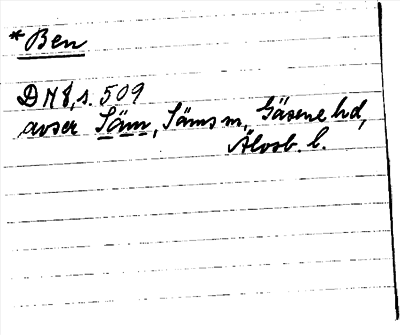 *Ben
DN8, s. 509
avser Säm, Säms m, Gäsene hd,
Älvsb. l.